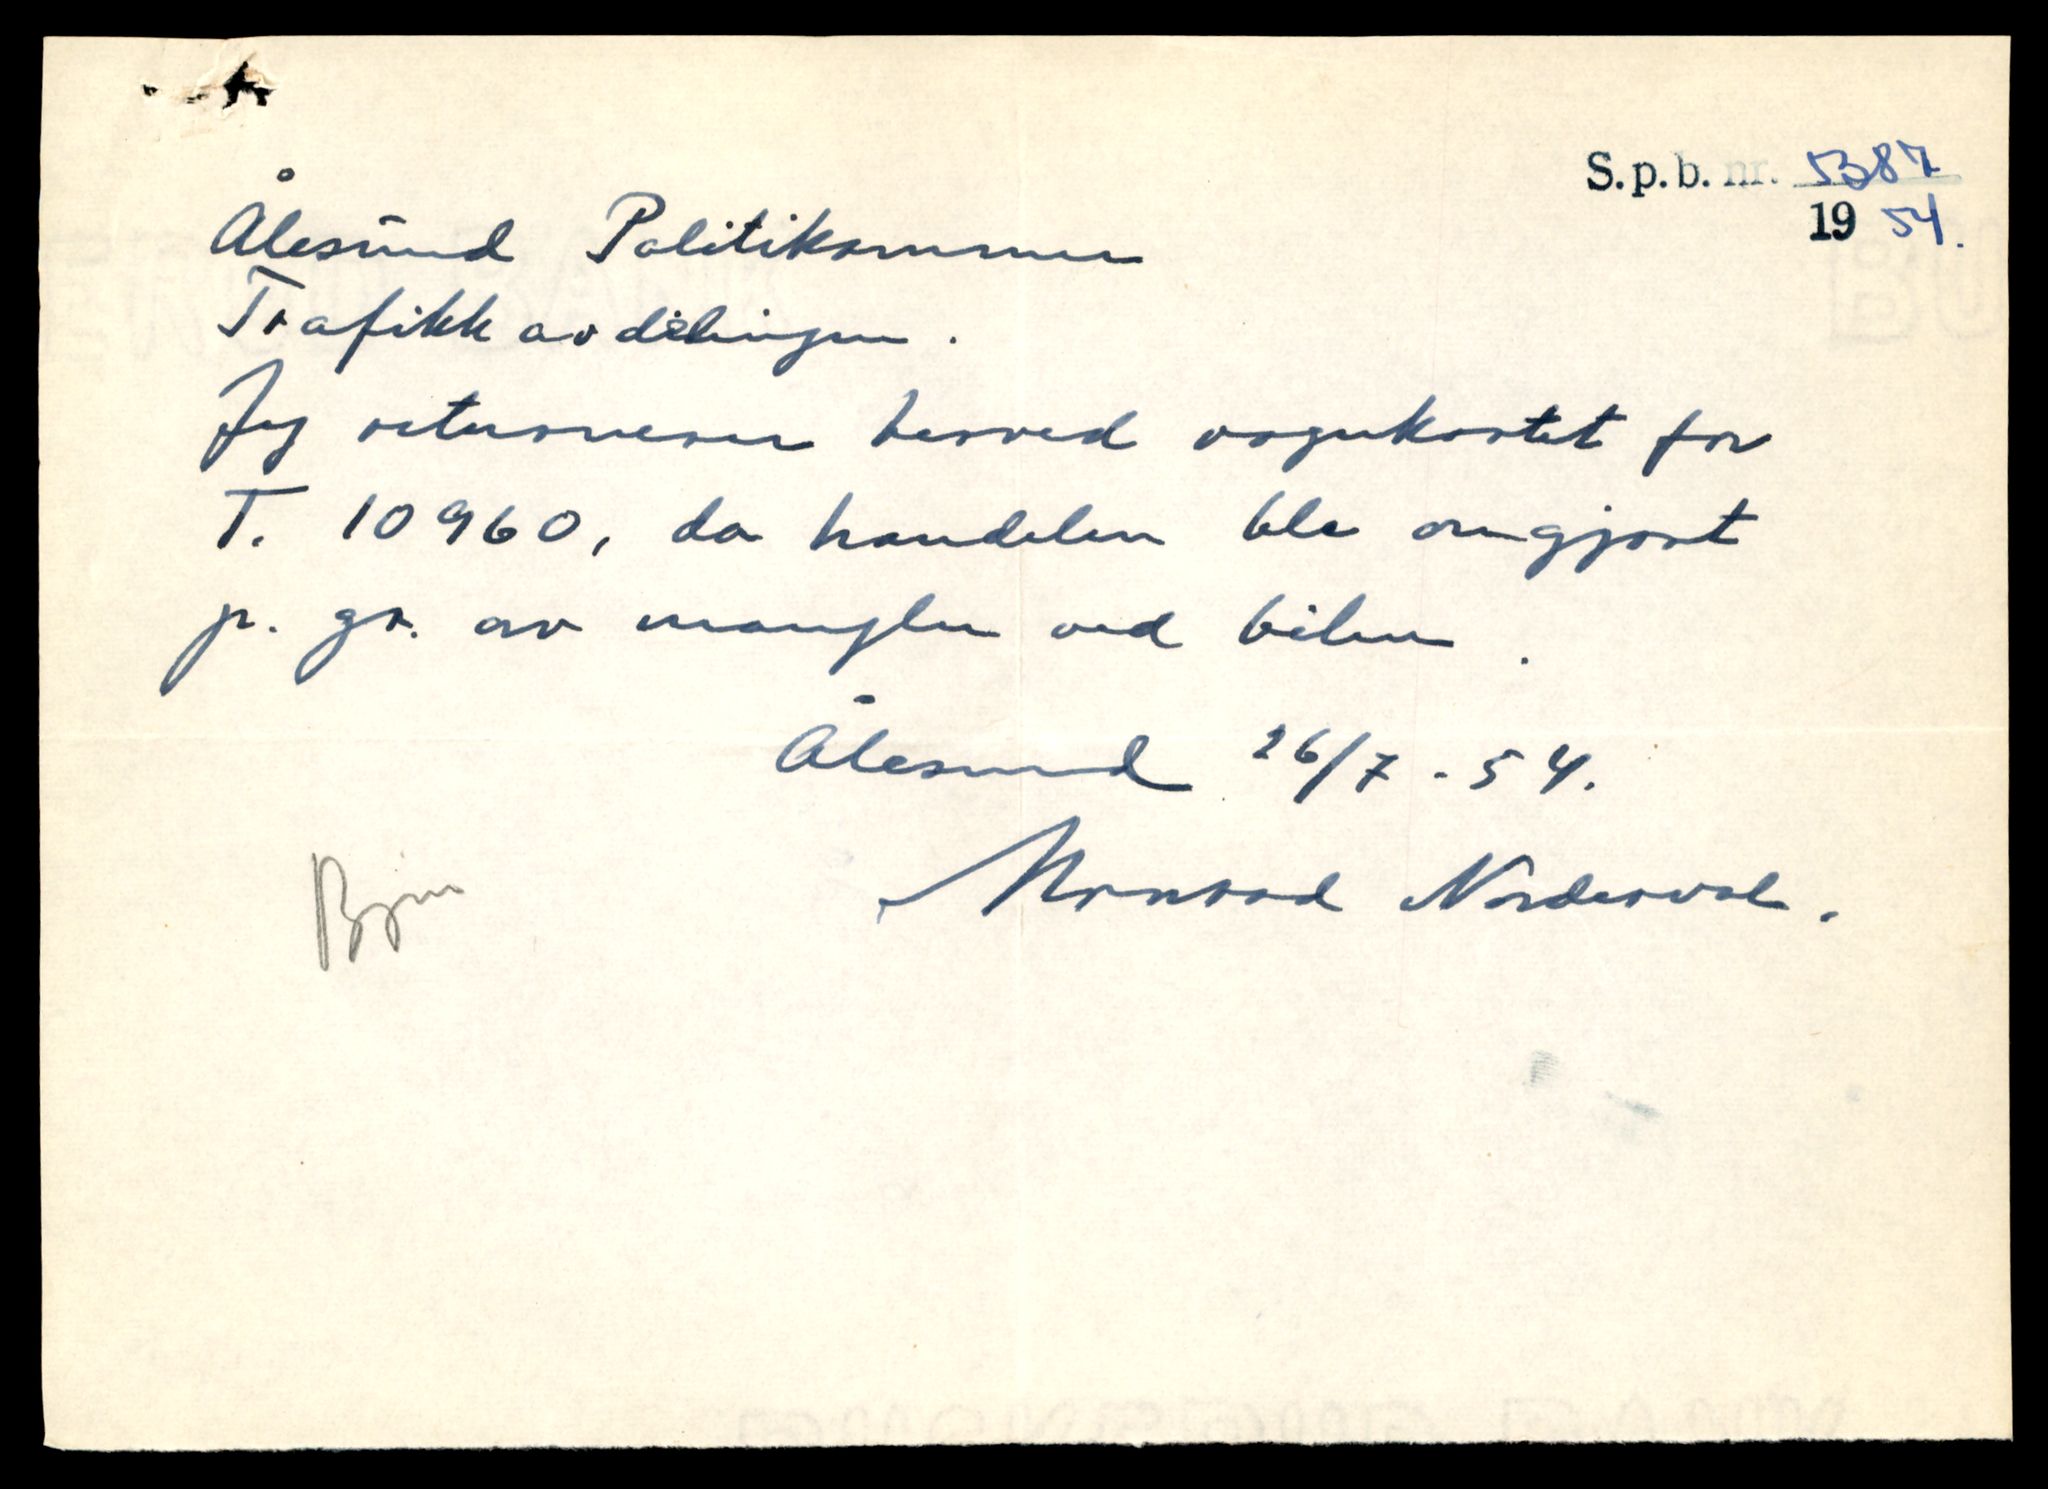 S.p.b. nr. 5387
19 54.
Ålesund Politikammer
Trafikkavdelingen.
Jeg returnerer herved vognkortet for
T. 10960, da handelen ble omgjort
p. gr. av mangler ved bilen.
Ålesund 26/7 - 54.
Konrad Norderval.